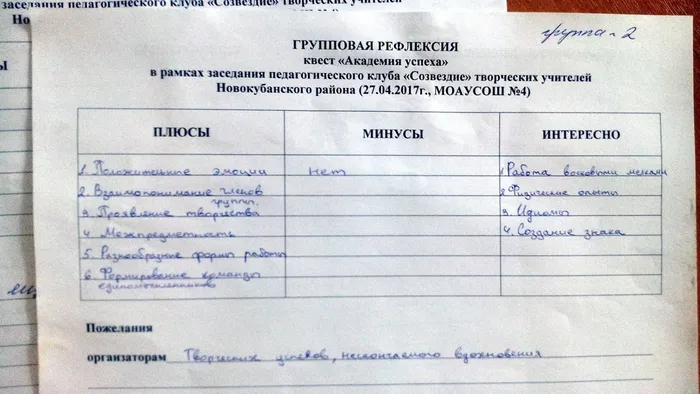 заседания педагогического клуба «Созвездие» творческих учителей
Но
группа - 2
ГРУППОВАЯ РЕФЛЕКСИЯ
квест «Академия успеха»
в рамках заседания педагогического клуба «Созвездие» творческих учителей
Новокубанского района (27.04.2017г., МОАУСОШ №4)
ПЛЮСЫ МИНУСЫ ИНТЕРЕСНО
1. Положительные эмоции нет 1 Работа восковыми мелками
2. Взаимопонимание членов групп. 2 Физические опыты
3. Проявление творчества 3. Идиомы
4. Межпредметность 4. Создание знака
5. Разнообразные формы работы
6. Формирование команды
единомышленников
Пожелания
организаторам Творческих успехов, нескончаемого вдохновения